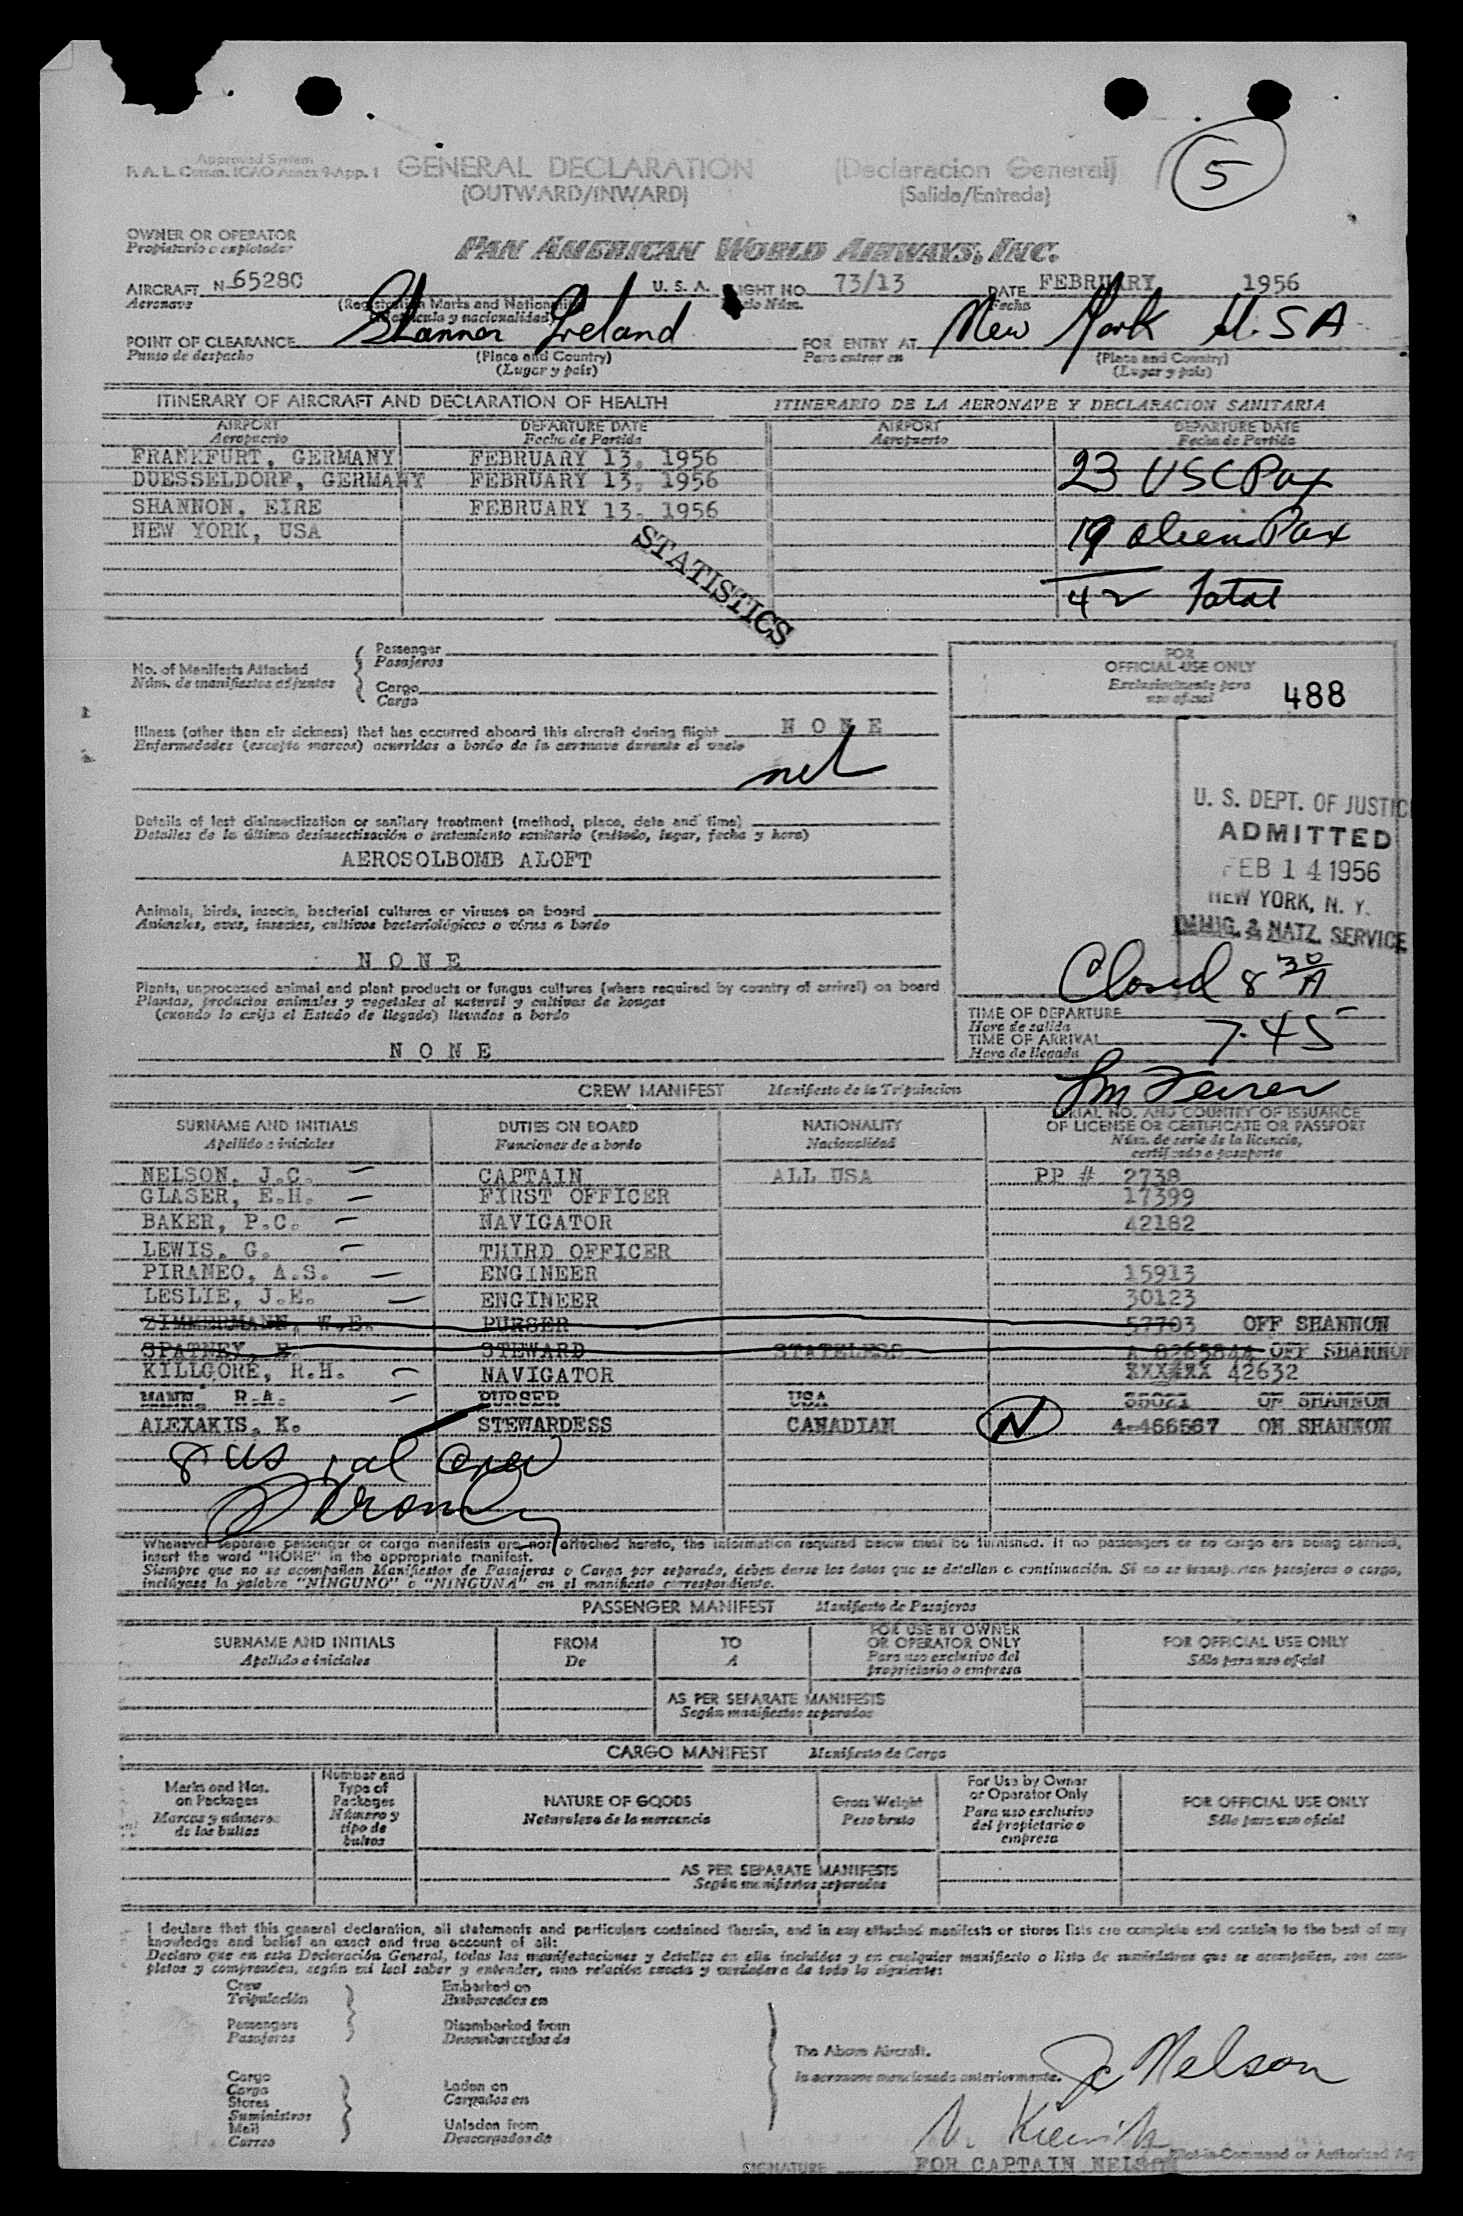 Approved System
F. A. L. Comm. ICAO Annex 9-App. 1
GENERAL DECLARATION (Declaracion General)
(OUTWARD/INWARD) (Salida/Entrada)
5
OWNER OR OPERATOR
Propietario o explotador
PAN AMERICAN WORLD AIRWAYS, INC.
AIRCRAFT N 6528C U. S. A. FLIGHT NO. 73/13 DATE FEBRUARY 1956
Aeronave (Registration Marks and Nationality) Fecha
(Matricula y nacionalidad)
POINT OF CLEARANCE Shannon Ireland FOR ENTRY AT New York U.S A
Punto de despacho (Place and Country) Para entrar en (Place and Country)
(Lugar y país) (Lugar y país)
ITINERARY OF AIRCRAFT AND DECLARATION OF HEALTH ITINERARIO DE LA AERONAVE Y DECLARACION SANITARIA
AIRPORT DEPARTURE DATE AIRPORT DEPARTURE DATE
Aeropuerto Fecha de Partida Aeropuerto Fecha de Partida
FRANKFURT, GERMANY FEBRUARY 13, 1956
DUESSELDORF, GERMANY FEBRUARY 13, 1956
23 USC Pax
SHANNON, EIRE FEBRUARY 13, 1956
NEW YORK, USA
19 alien Pax
STATISTICS
42 Total
No. of Manifests Attached
Núm. de manifiestos adjuntos
Passenger
Pasajeros
Cargo
Carga
FOR
OFFICIAL USE ONLY
Exclusivamente para
uso oficial
488
Illness (other than air sickness) that has occurred aboard this aircraft during flight N O N E
Enfermedades (excepto mareos) ocurridas a bordo de la aeronave durante el vuelo
nil
Details of last disinsectization or sanitary treatment (method, place, date and time)
Detalles de la última desinsectización o tratamiento sanitario (método, lugar, fecha y hora)
AEROSOLBOMB ALOFT
U. S. DEPT. OF JUSTIC
ADMITTED
FEB 14 1956
NEW YORK, N. Y.
IMMIG. & NATZ. SERVICE
Animals, birds, insects, bacterial cultures or viruses on board
Animales, aves, insectos, cultivos bacteriológicos o virus a bordo
N O N E
Closed 8 30 A
Plants, unprocessed animal and plant products or fungus cultures (where required by country of arrival) on board
Plantas, productos animales y vegetales al natural y cultivos de hongos
(cuando lo exija el Estado de llegada) llevados a bordo
N O N E
TIME OF DEPARTURE
Hora de salida
TIME OF ARRIVAL 7.45
Hora de llegada
CREW MANIFEST Manifiesto de la Tripulacion
SURNAME AND INITIALS DUTIES ON BOARD NATIONALITY SERIAL NO. AND COUNTRY OF ISSUANCE
OF LICENSE OR CERTIFICATE OR PASSPORT
Apellido e iniciales Funciones de a bordo Nacionalidad Núm. de serie de la licencia,
certificado o pasaporte
NELSON, J.C. — CAPTAIN ALL USA PP # 2738
GLASER, E.H. — FIRST OFFICER 17399
BAKER, P.C. — NAVIGATOR 42182
LEWIS, G. — THIRD OFFICER
PIRANEO, A.S. — ENGINEER 15913
LESLIE, J.E. — ENGINEER 30123
ZIMMERMANN, W.E. PURSER 57703 OFF SHANNON
SPATNEY, E. STEWARD STATELESS A 8265844 OFF SHANNON
KILLGORE, R.H. — NAVIGATOR XXXXXX 42632
MANN, R.A. — PURSER USA 35021 OF SHANNON
ALEXAKIS, K. STEWARDESS CANADIAN N 4-466567 ON SHANNON
8 US 1 al crew
Whenever separate passenger or cargo manifests are not attached hereto, the information required below must be furnished. If no passengers or no cargo are being carried,
insert the word "NONE" in the appropriate manifest.
Siempre que no se acompañen Manifiestos de Pasajeros o Carga por separado, deben darse los datos que se detallan a continuación. Si no se transportan pasajeros o carga,
inclúyase la palabra "NINGUNO" o "NINGUNA" en el manifiesto correspondiente.
PASSENGER MANIFEST Manifiesto de Pasajeros
SURNAME AND INITIALS FROM TO FOR USE BY OWNER
OR OPERATOR ONLY FOR OFFICIAL USE ONLY
Apellido e iniciales De A Para uso exclusivo del
propietario o empresa Sólo para uso oficial
AS PER SEPARATE MANIFESTS
Según manifiestos separados
CARGO MANIFEST Manifiesto de Carga
Marks and Nos.
on Packages
Marcas y números
de los bultos
Number and
Type of
Packages
Número y
tipo de
bultos
NATURE OF GOODS
Naturaleza de la mercancia
Gross Weight
Peso bruto
For Use by Owner
or Operator Only
Para uso exclusivo
del propietario o
empresa
FOR OFFICIAL USE ONLY
Sólo para uso oficial
AS PER SEPARATE MANIFESTS
Según manifiestos separados
I declare that this general declaration, all statements and particulars contained therein, and in any attached manifests or stores lists are complete and contain to the best of my
knowledge and belief an exact and true account of all:
Declaro que en esta Declaración General, todas las manifestaciones y detalles en ella incluidos y en cualquier manifiesto o lista de suministros que se acompañen, son com-
pletos y comprenden, según mi leal saber y entender, una relación exacta y verdadera de todo lo siguiente:
Crew Embarked on
Tripulación Embarcados en
Passengers Disembarked from
Pasajeros Desembarcados de
The Above Aircraft.
la aeronave mencionada anteriormente.
JC Nelson
Cargo
Carga
Stores
Suministros
Mail
Correo
Laden on
Cargados en
Unladen from
Descargados de
Pilot-in-Command or Authorized Ag
SIGNATURE FOR CAPTAIN NELSON